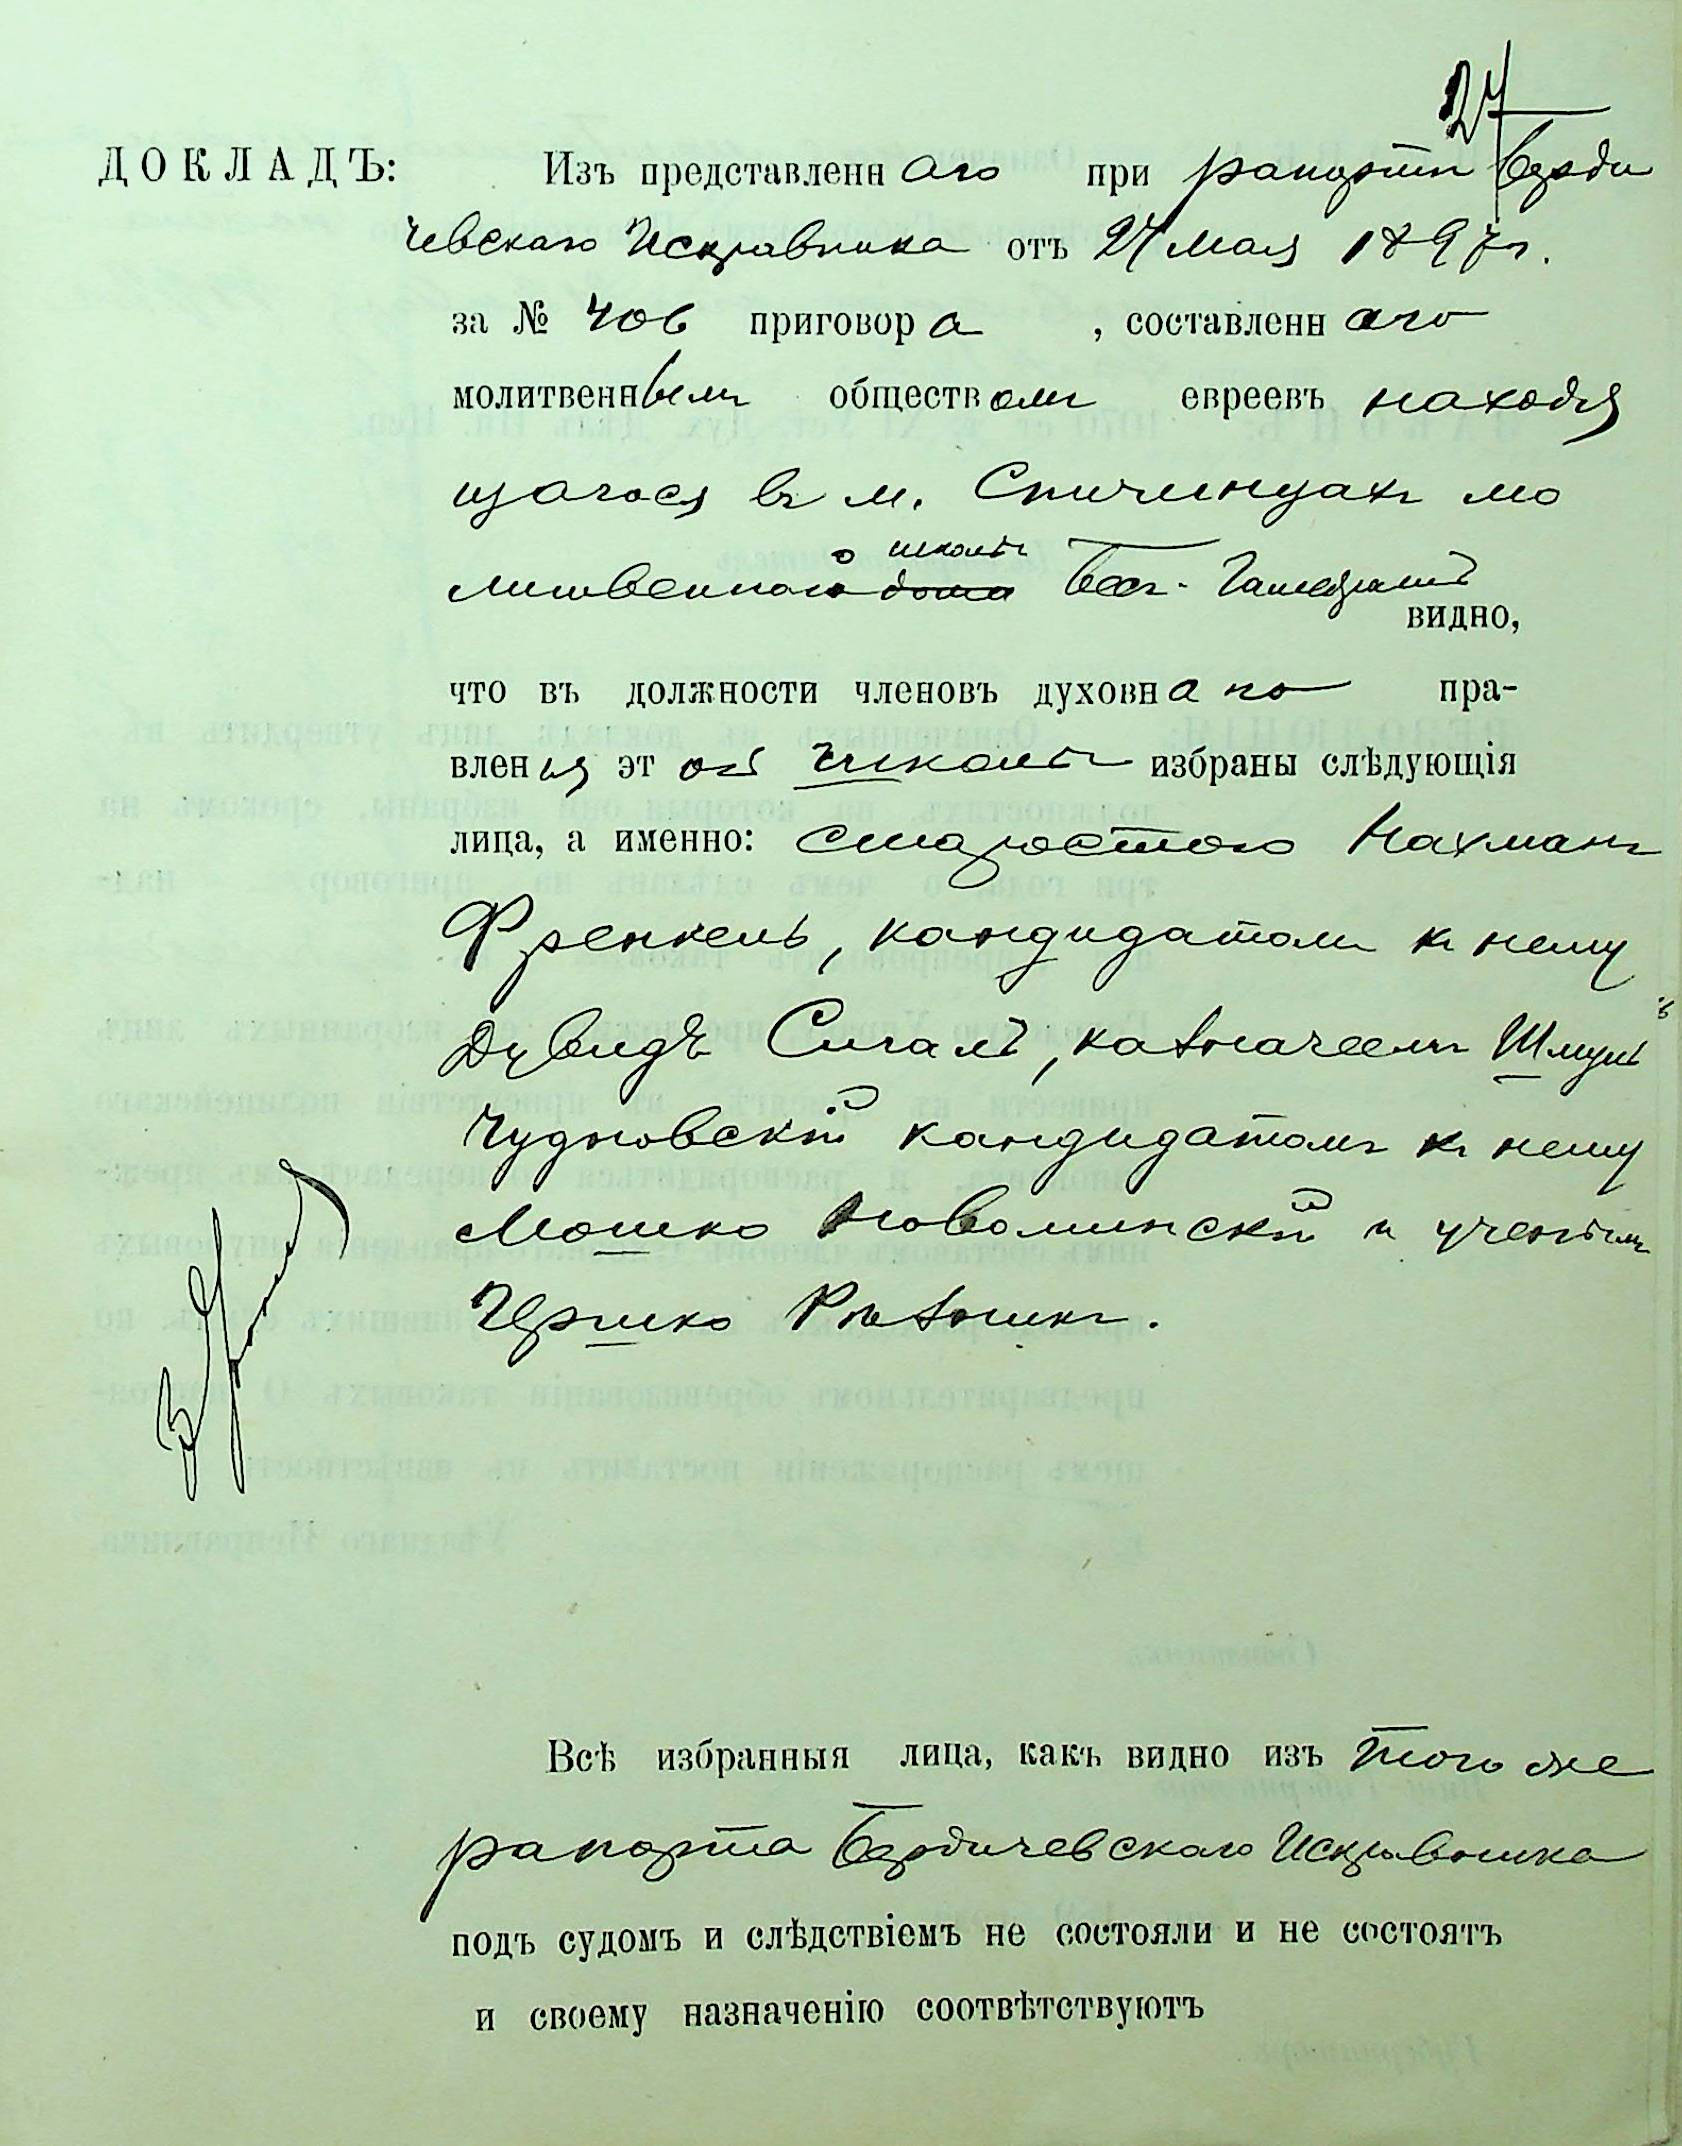 27
ДОКЛАДЪ: Изъ представленнаго при рапортѣ Берди
чевскаго Исправника отъ 24 мая 1897 г.
за № 406 приговора, составленнаго
молитвеннымъ обществомъ евреевъ находя
щагося въ м. Спичинцахъ мо
школы
литвенной дома Бес-Гамедрашъ
видно,
что въ должности членовъ духовнаго пра-
вленія этой школы избраны слѣдующія
лица, а именно: старостою Нахманъ
Френкель, кандидатомъ къ нему
Дувидъ Сигалъ, казначеемъ Шмуль
Чудновскій кандидатомъ къ нему
Мошко Новоминскій и ученымъ
Гершко Рѣзникъ.
Всѣ избранныя лица, какъ видно изъ того же
рапорта Бердичевскаго Исправника
подъ судомъ и слѣдствіемъ не состояли и не состоятъ
и своему назначенію соотвѣтствуютъ